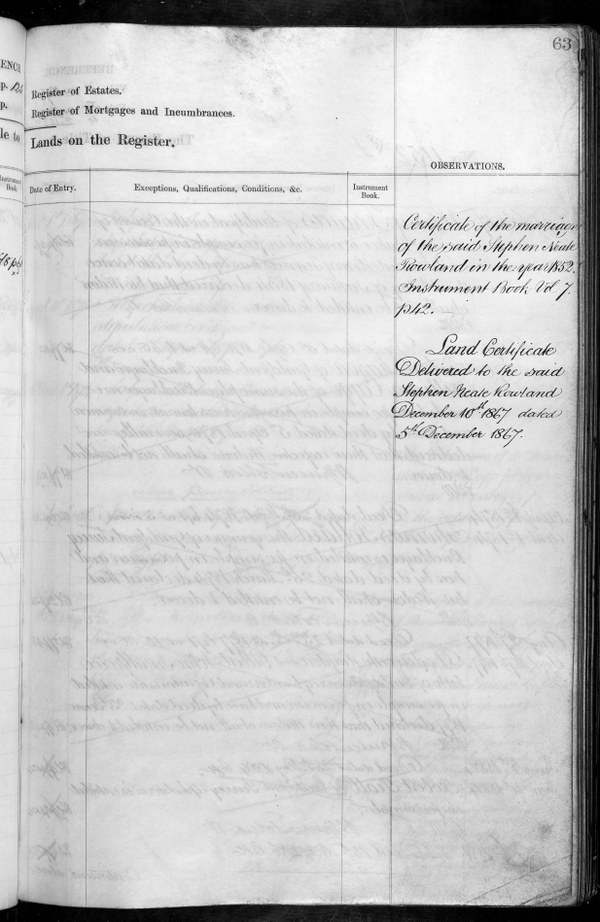 63
ENCE
p.
p.
le to
Instrument
Book.
Register of Estates.
Register of Mortgages and Incumbrances.
Lands on the Register.
OBSERVATIONS.
Date of Entry.
Exceptions, Qualifications, Conditions, &c.
Instrument
Book.
Certificate of the marriage
of the said Stephen Neate
Rowland in the year 1852.
Instrument Book Vol 7.
p42.
Land Certificate
Delivered to the said
Stephen Neate Rowland
December 10th 1867 dated
5th December 1867.